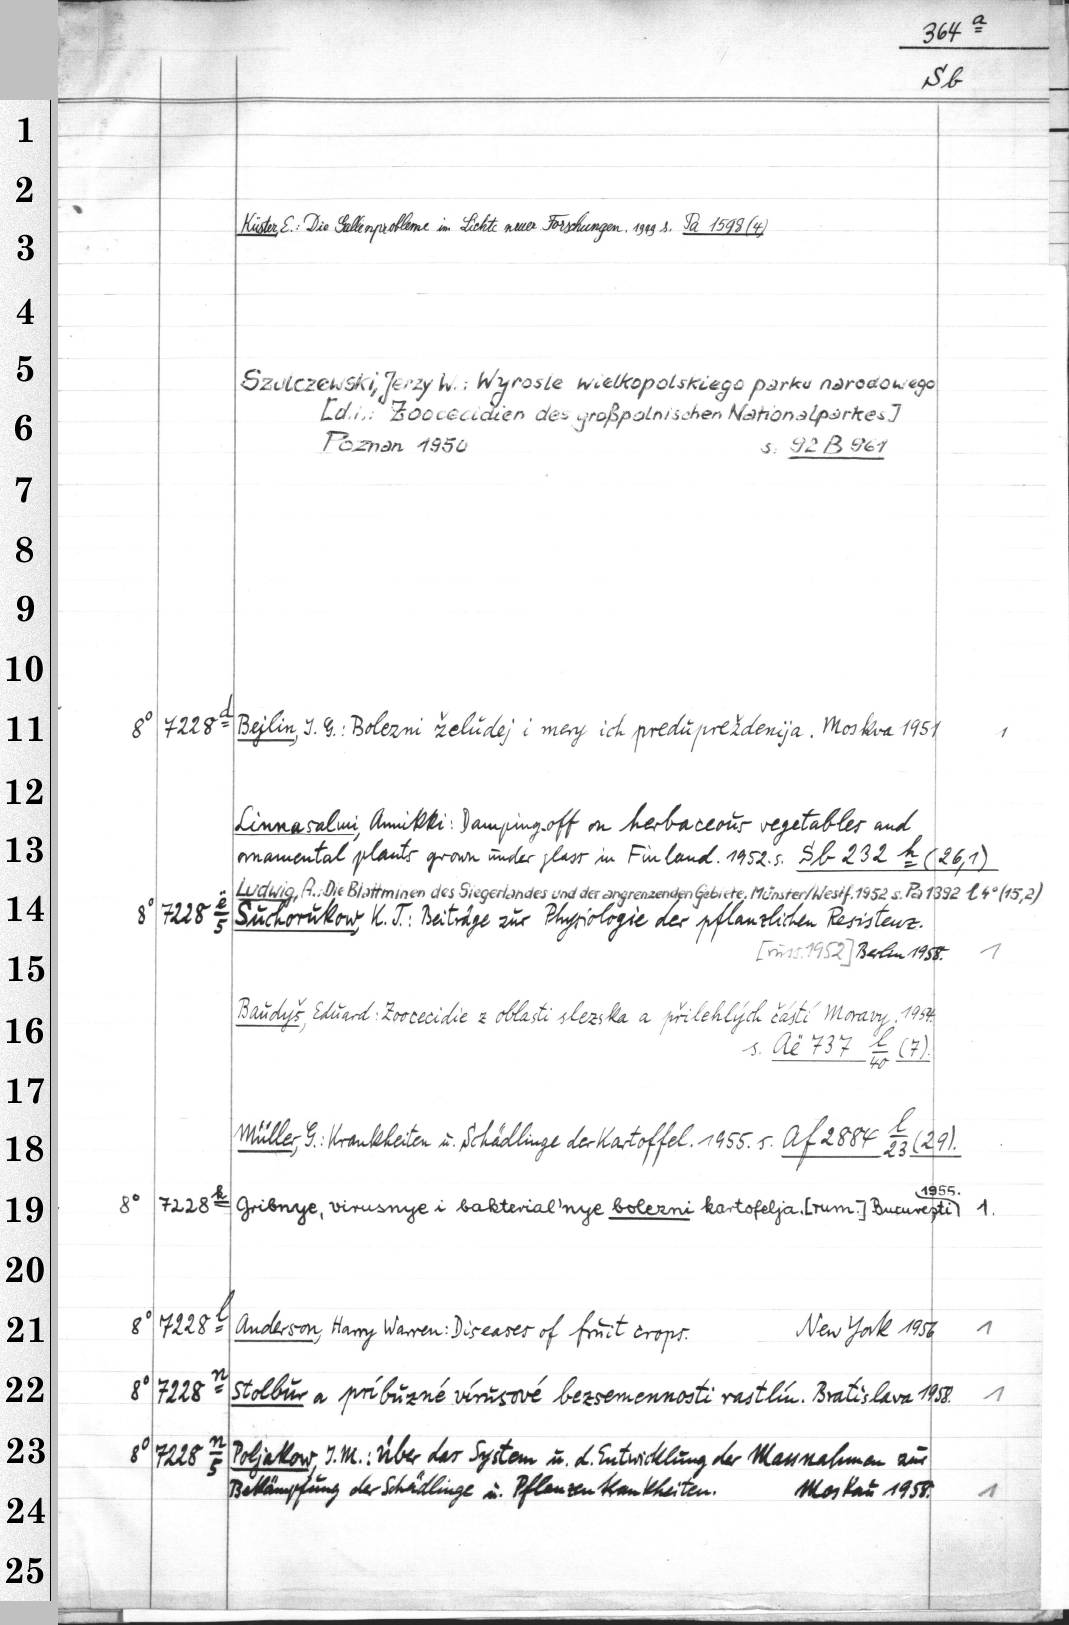 364 a
Sb
1
2
Küster, E.: Die Gallenprobleme im Lichte neuer Forschungen. 1949 s. Pa 1598 (4)
3
4
5
Szulczewski, Jerzy W.: Wyrosle wielkopolskiego parku narodowego
[d.i.: Zoocecidien des großpolnischen Nationalparkes]
6
Poznan 1950 s. 92 B 961
7
8
9
10
11 8° 7228 d Bejlin, I. G.: Bolezni želudej i mery ich predupreždenija. Moskva 1951 1
12
Linnasalmi, Annikki: Damping-off on herbaceous vegetables and
13 ornamental plants grown under glass in Finland. 1952. s. Sb 232 h (26,1)
Ludwig, A.: Die Blattminen des Siegerlandes und der angrenzenden Gebiete. Münster/Westf. 1952 s. Pa 1392 l 4° (15,2)
14 8° 7228 e/5 Suchorukow, K. T.: Beiträge zur Physiologie der pflanzlichen Resistenz.
[russ. 1952] Berlin 1958. 1
15
Baudyš, Eduard: Zoocecidie z oblasti slezska a přilehlých částí Moravy. 1954.
16 s. Aë 737 l/40 (7).
17
18 Müller, G.: Krankheiten u. Schädlinge der Kartoffel. 1955. s. Af 2884 l/23 (29).
1955.
19 8° 7228 k Gribnye, virusnye i bakterial'nye bolezni kartofelja. [rum.] Bucureşti 1.
20
21 8° 7228 l Anderson, Harry Warren: Diseases of fruit crops. New York 1956 1
22 8° 7228 n Stolbur a príbuzné vírusové bezsemennosti rastlín. Bratislava 1958. 1
23 8° 7228 n/5 Poljakow, I. M.: Über das System u. d. Entwicklung der Massnahmen zur
Bekämpfung der Schädlinge u. Pflanzenkrankheiten. Moskau 1958. 1
24
25